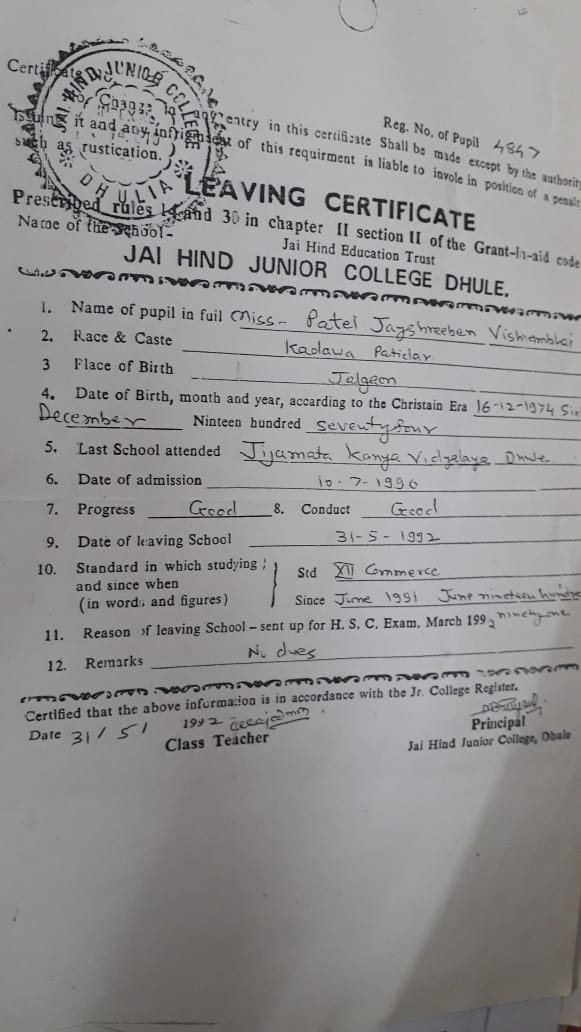 JAI HIND JUNIOR COLLEGE
DHULIA
Reg. No. of Pupil 4847
Certificate
No Change in any entry in this certificate Shall be made except by the authority
Issuing it and any infrigment of this requirment is liable to invole in position of a penalt
such as rustication.
LEAVING CERTIFICATE
Prescribed rules and 30 in chapter II section II of the Grant-in-aid code
Name of the School- Jai Hind Education Trust
JAI HIND JUNIOR COLLEGE DHULE.
1. Name of pupil in full Miss- Patel Jayshreeben Vishrambhai
2. Race & Caste Kadawa Patidar
3 Place of Birth Jalgaon
4. Date of Birth, month and year, accarding to the Christain Era 16-12-1974
December Ninteen hundred seventyfour
5. Last School attended Jijamata Kanya Vidyalaya Dhule
6. Date of admission 10-7-1990
7. Progress Good 8. Conduct Good
9. Date of leaving School 31-5-1992
10. Standard in which studying Std XII Commerce
and since when
(in words and figures) Since June 1991 June nineteen hundred
ninetyone
11. Reason of leaving School-sent up for H. S. C. Exam. March 1992
12. Remarks No dues
Certified that the above information is in accordance with the Jr. College Register.
Date 31/5/1992
Class Teacher
Principal
Jai Hind Junior College, Dhule